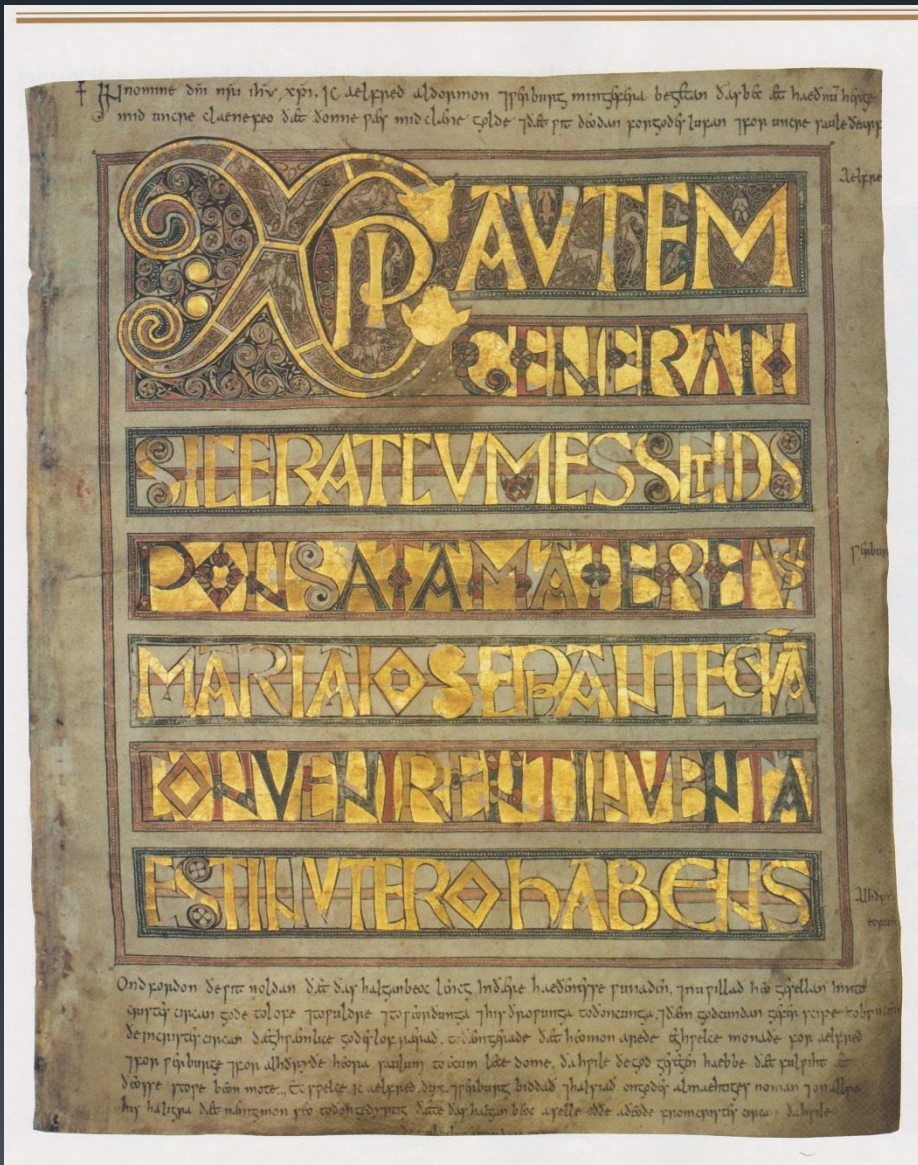 + In nomine dñi nr̄i ihū xp̄i. Ic aelfred aldormon ⁊ ƿerburg mingefera begetan ðasbec æt haeðnū herge
mid uncre claene feo ðæt ðonne ƿæs mid clæne golde ⁊ðæt ƿit deodan forgodes lufan ⁊for uncre saule ðearf
Aelfre
XPI AVTEM
GENERATI
SICERATCVMESSETDS
PONSATAMATEREIVS
MARIAIOSEPANTEQVĀ
CONVENIRENTINVENTA
ESTINVTEROHABENS
ƿerbur
Alhðryð
eorum
Ondforðon ðeƿit noldan ðæt ðas halganbeoc lencg inðære haeðenesse ƿunaden, ⁊nuƿillað heo gesellan innto
cristes circan gode tolofe ⁊toƿuldre ⁊toƿeorðunga ⁊his ðroƿunga toðoncunga, ⁊ðæm godcundan geferscipe tobrucen
ðeincristes circan dæghƿæmlice godes lof rærað, toðæmgerade ðæt heomon arede eghƿelce monaðe for aelfred
⁊for ƿerburge ⁊for alhðryðe heora saulum toecum lecedome, ðahƿile ðegod gesegen haebbe ðæt fulƿiht æt
ðeosse stoƿe beon mote. Ec sƿelce ic aelfred dux ⁊ƿerburg biddað ⁊halsiað ongodes almaehtiges noman ⁊onallra
his haligra ðæt nænigmon seo toðongedyrstig ðætte ðas halgan beoc aselle oððe aðeode fromcristes circan ðahƿile